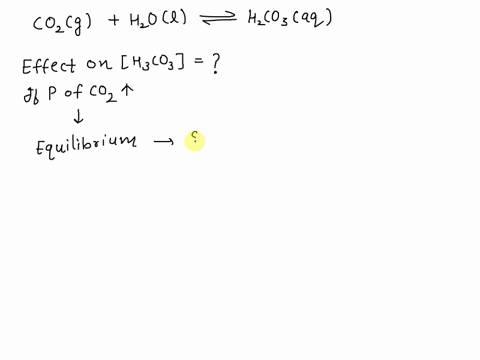 CO₂(g) + H₂O(l) ⇌ H₂CO₃(aq)
Effect on [H₃CO₃] = ?
If P of CO₂ ↑
↓
Equilibrium → ?